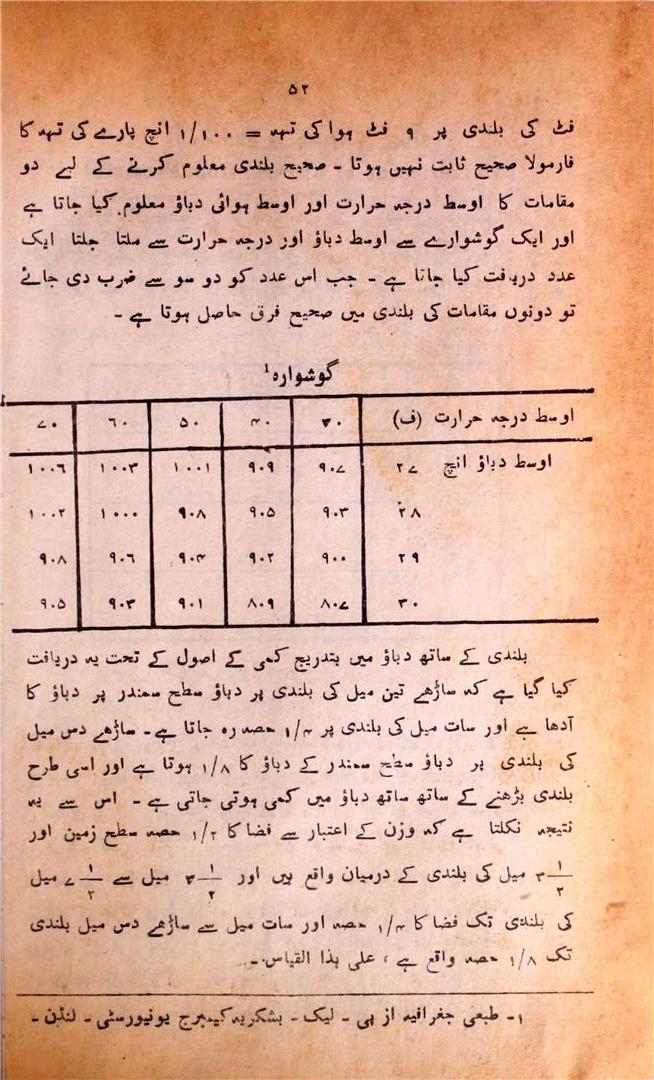 ۵۲
فٹ کی بلندی پر ۹ فٹ ہوا کی تہہ = ۱/۱۰۰ انچ پارے کی تہہ کا
فارمولا صحیح ثابت نہیں ہوتا ۔ صحیح بلندی معلوم کرنے کے لیے دو
مقامات کا اوسط درجہ حرارت اور اوسط ہوائی دباؤ معلوم کیا جاتا ہے
اور ایک گوشوارے سے اوسط دباؤ اور درجہ حرارت سے ملتا جلتا ایک
عدد دریافت کیا جاتا ہے ۔ جب اس عدد کو دو سو سے ضرب دی جائے
تو دونوں مقامات کی بلندی میں صحیح فرق حاصل ہوتا ہے ۔
گوشوارہ۱
اوسط درجہ حرارت (ف) ۳۰ ۴۰ ۵۰ ۶۰ ۷۰
اوسط دباؤ انچ ۲۷ ۹۰۷ ۹۰۹ ۱۰۰۱ ۱۰۰۳ ۱۰۰۶
۲۸ ۹۰۳ ۹۰۵ ۹۰۸ ۱۰۰۰ ۱۰۰۲
۲۹ ۹۰۰ ۹۰۲ ۹۰۴ ۹۰۶ ۹۰۸
۳۰ ۸۰۷ ۸۰۹ ۹۰۱ ۹۰۳ ۹۰۵
بلندی کے ساتھ دباؤ میں بتدریج کمی کے اصول کے تحت یہ دریافت
کیا گیا ہے کہ ساڑھے تین میل کی بلندی پر دباؤ سطح سمندر پر دباؤ کا
آدھا ہے اور سات میل کی بلندی پر ۱/۴ حصہ رہ جاتا ہے ۔ ساڑھے دس میل
کی بلندی پر دباؤ سطح سمندر کے دباؤ کا ۱/۸ ہوتا ہے اور اسی طرح
بلندی بڑھنے کے ساتھ ساتھ دباؤ میں کمی ہوتی جاتی ہے ۔ اس سے یہ
نتیجہ نکلتا ہے کہ وزن کے اعتبار سے فضا کا ۱/۲ حصہ سطح زمین اور
۳ ۱/۲ میل کی بلندی کے درمیان واقع ہیں اور ۳ ۱/۲ میل سے ۷ ۱/۲ میل
کی بلندی تک فضا کا ۱/۴ حصہ اور سات میل سے ساڑھے دس میل بلندی
تک ۱/۸ حصہ واقع ہے ، علی ہذا القیاس ۔
۱۔ طبعی جغرافیہ از پی ۔ لیک ۔ بشکریہ کیمبرج یونیورسٹی ۔ لنڈن ۔